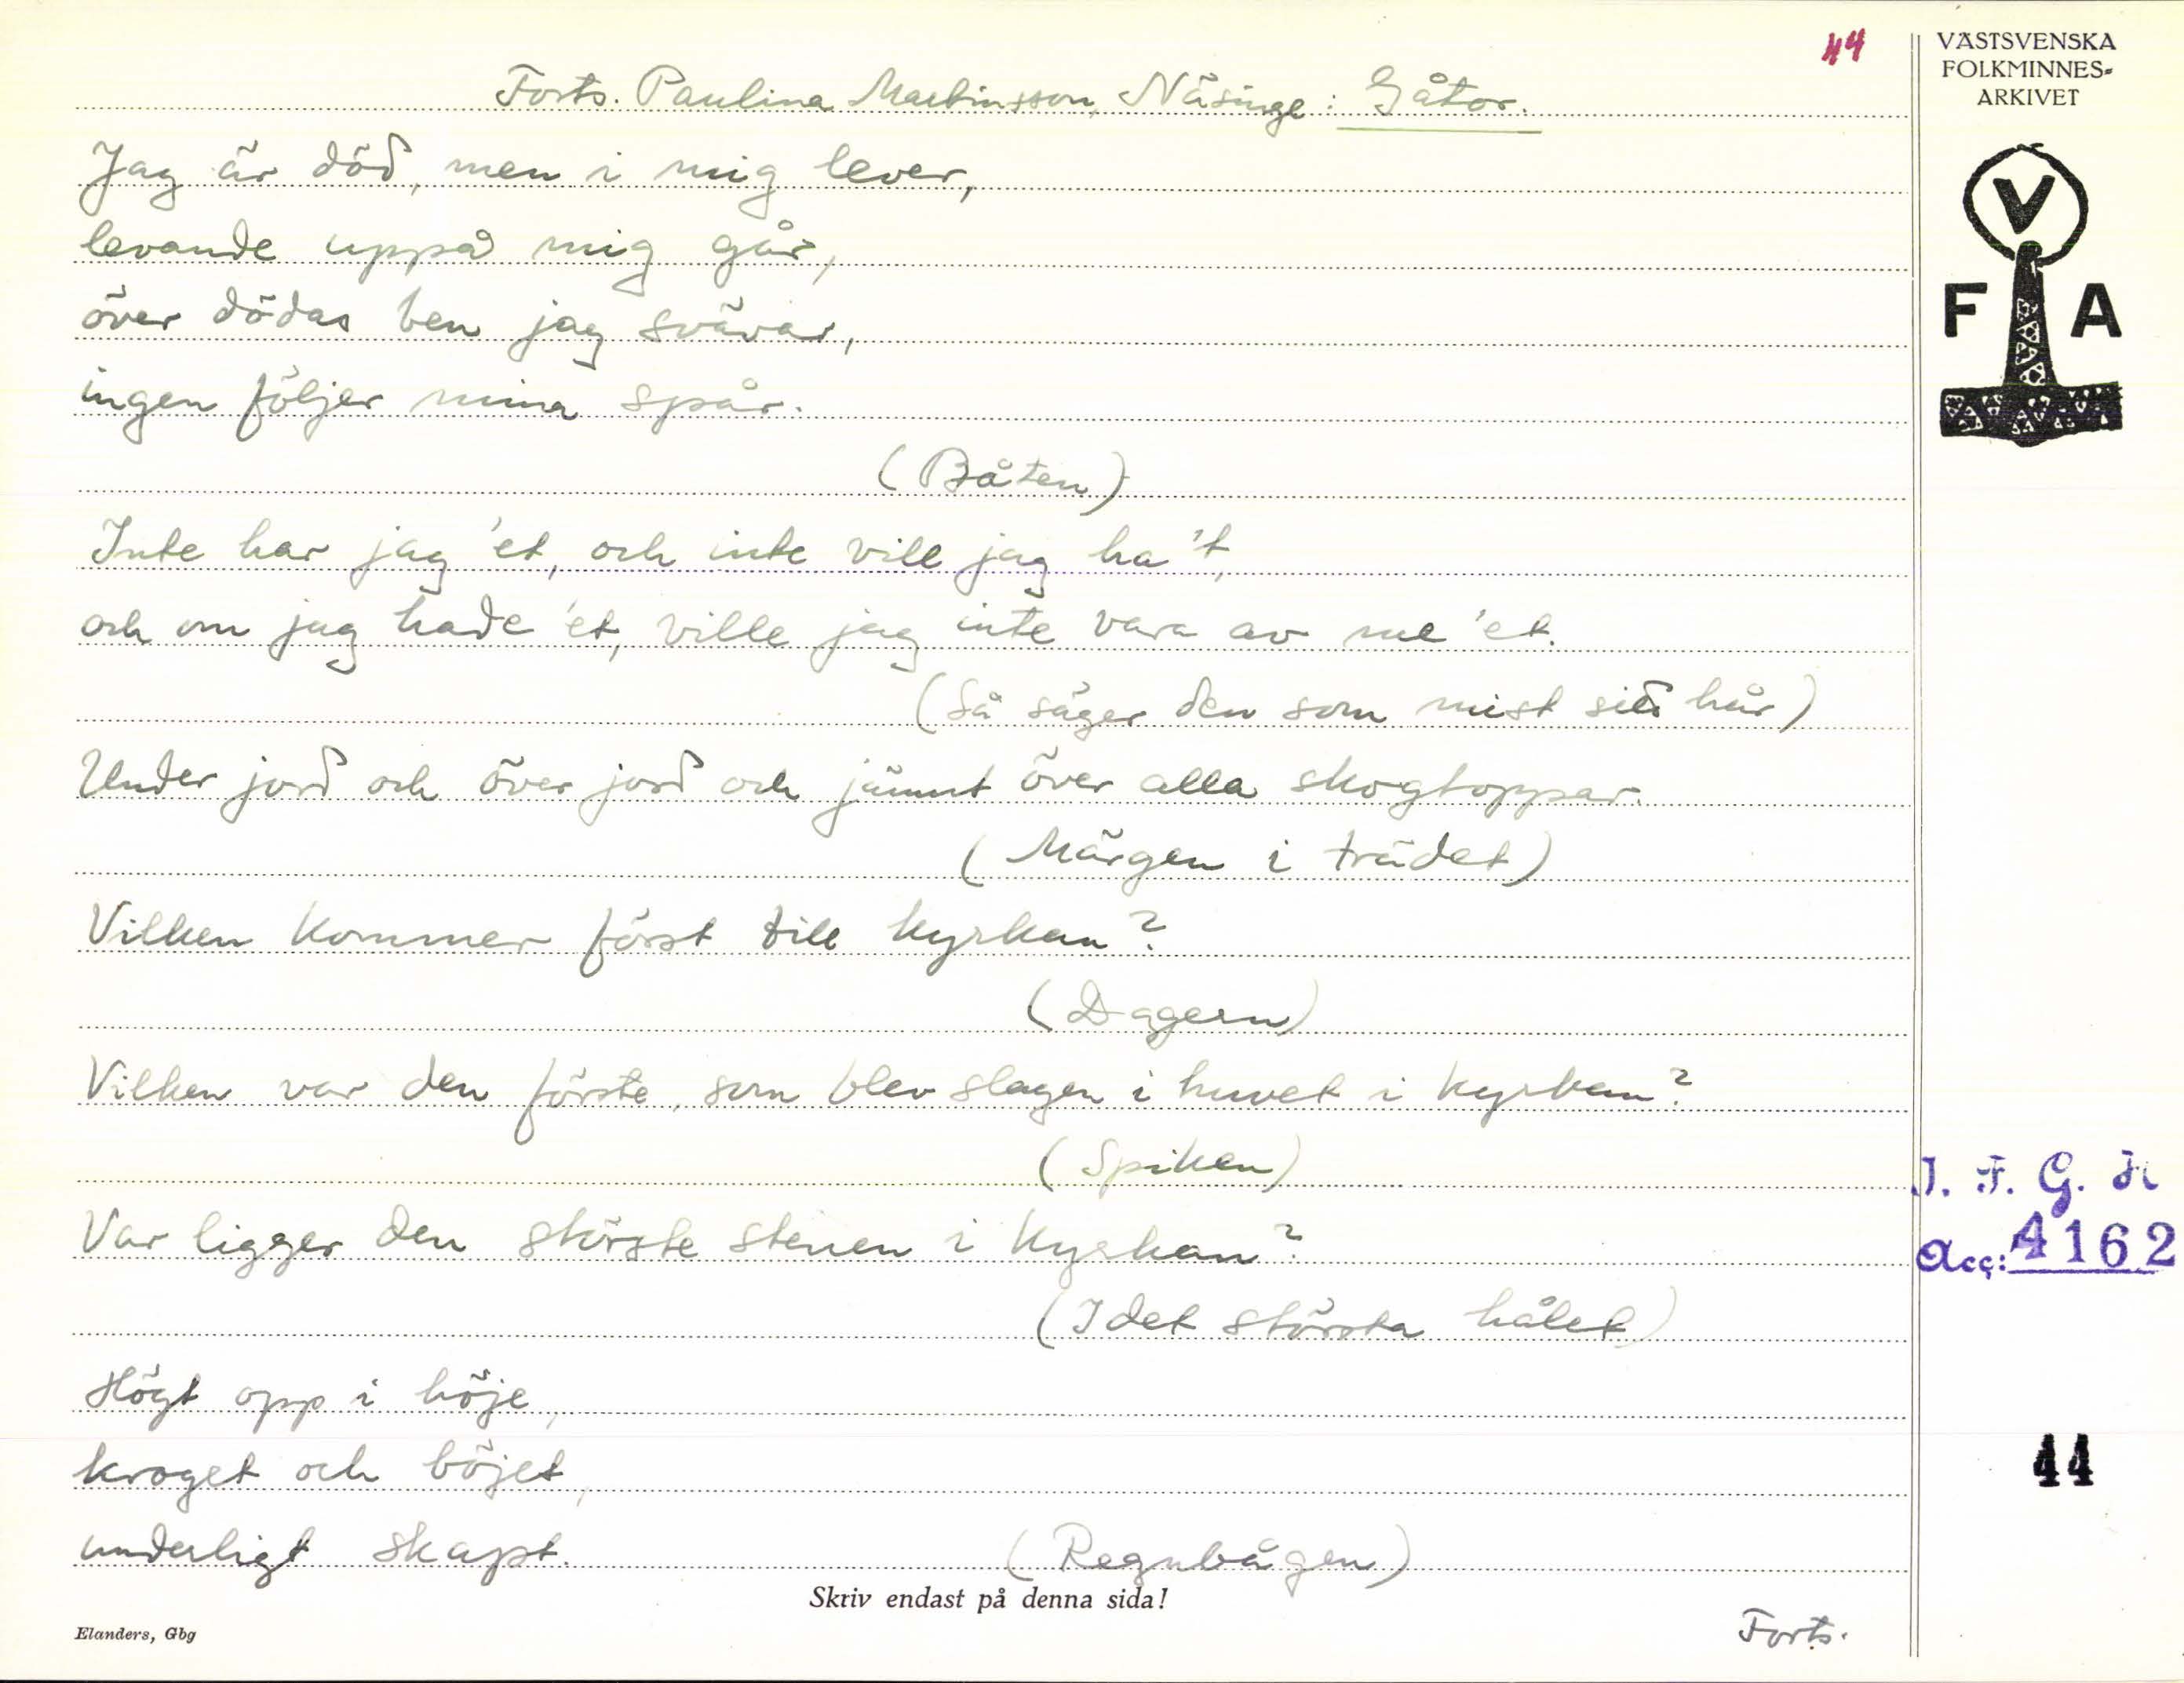 44
Forts. Paulina Martinsson, Näsinge: Gåtor.
Jag är död, men i mig lever,
levande uppå mig går,
över dödas ben jag svävar,
ingen följer mina spår.
(Båten)
Inte har jag 'et, och inte vill jag ha 't,
och om jag hade 'et, ville jag inte vara av me 'et.
(Så säger den som mist sitt hår)
Under jord och över jord och jämnt över alla skogtoppar.
(Märgen i trädet)
Vilken kommer först till kyrkan?
(Dagern)
Vilken var den förste, som blev slagen i huvet i kyrkan?
(Spiken)
Var ligger den störste stenen i kyrkan?
(I det största hålet)
Högt opp i höje,
kroget och böjet,
underligt skapt. (Regnbågen)
Skriv endast på denna sida!
Elanders, Gbg
Forts.
VÄSTSVENSKA
FOLKMINNES-
ARKIVET
V
F A
I. F. G. H
Acc: 4162
44